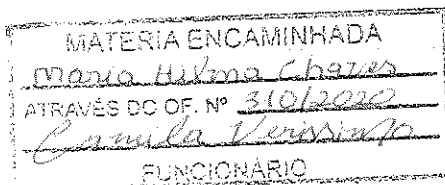 MATERIA ENCAMINHADA
Maria Hilma Chaves
ATRAVÉS DO OF. Nº 310/2020
Camila Verissimo
FUNCIONÁRIO